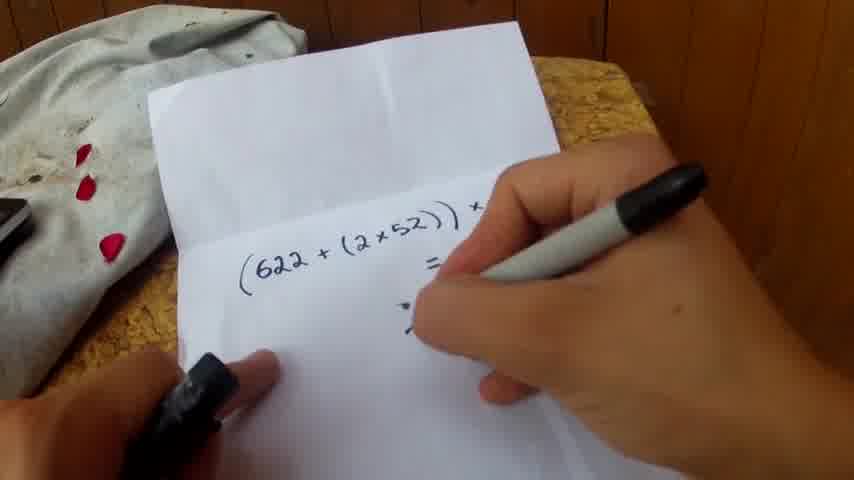 (622 + (2×52)) ×
=